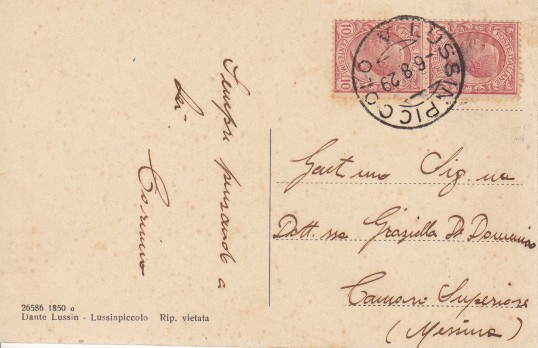 LUSSINPICCOLO
-6.8.29
A
10
10
Sempre pensando a
Lei
26586 1850 a
Dante Lussin - Lussinpiccolo Rip. vietata
Sig.na
Dott.ssa Graziella Di Domenico
Camaro Superiore
(Messina)